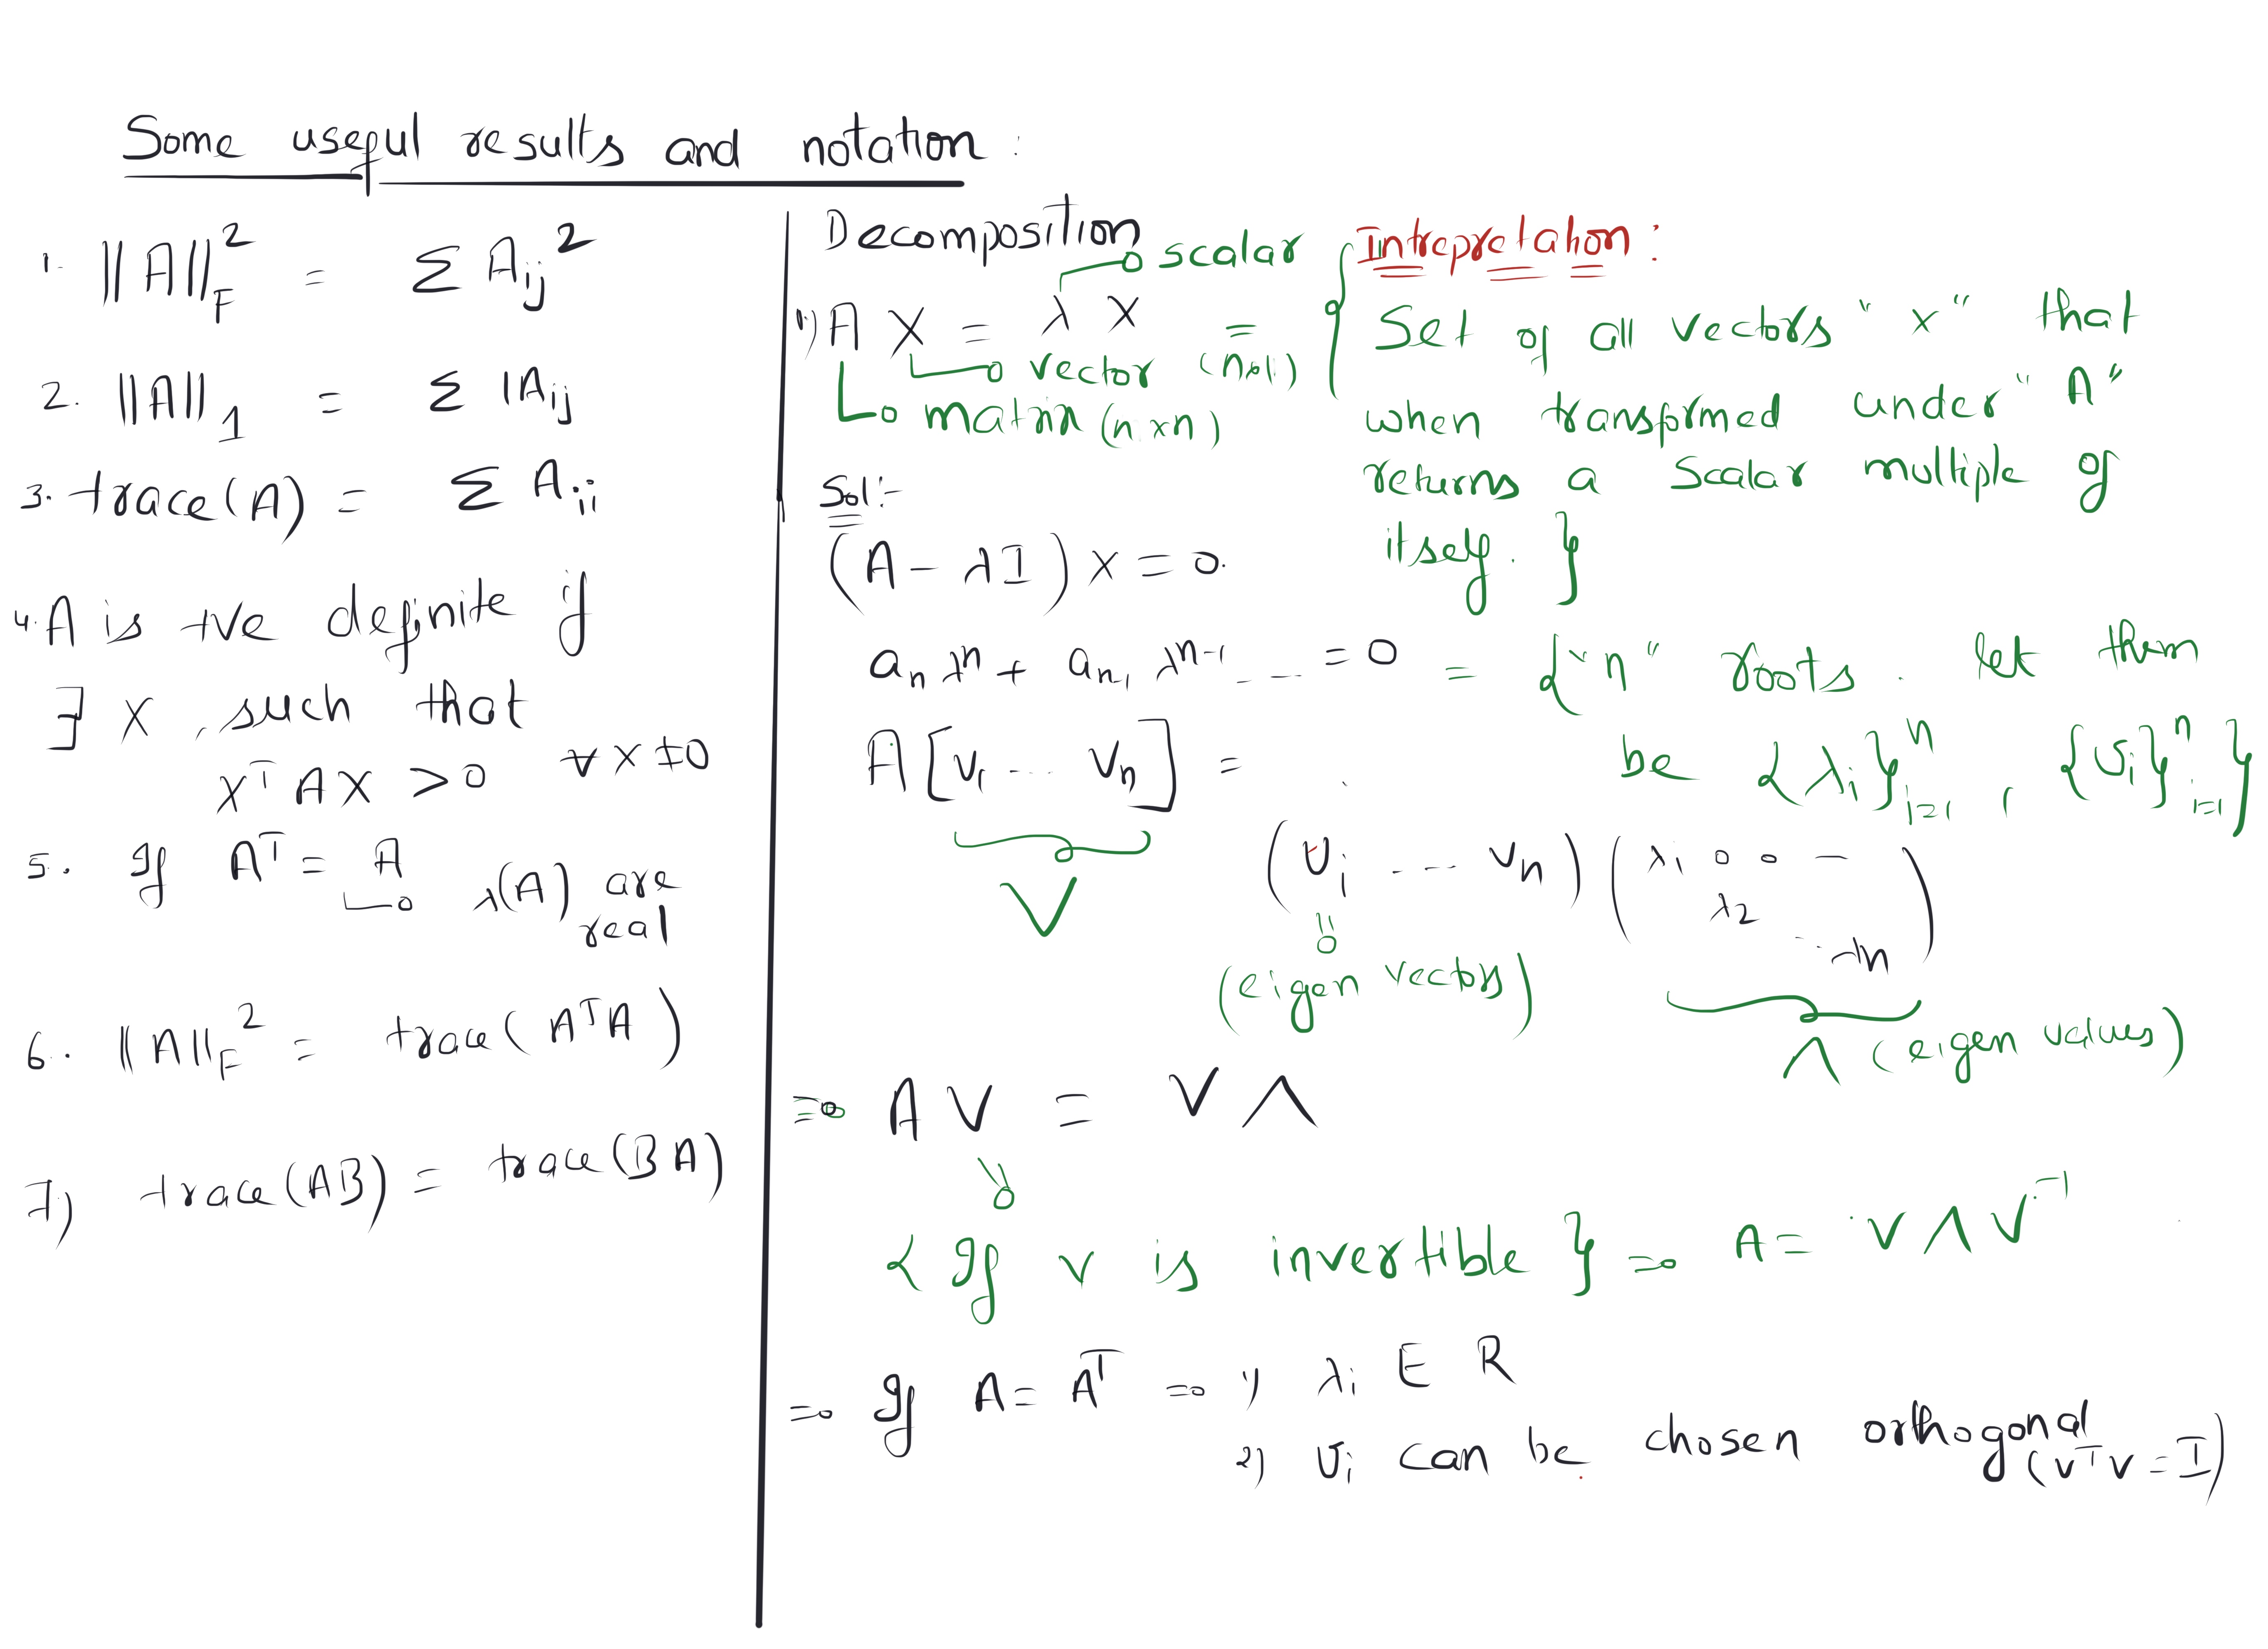 Some useful results and notation :
1. ||A||_F^2 = Σ A_ij^2
2. ||A||_1 = Σ |A_ij
3. trace(A) = Σ A_ii
4. A is +ve definite if
∃ X , such that
X^T A X > 0 ∀ X ≠ 0
5. If A^T = A
λ(A) are
real
6. ||A||_F^2 = trace(A^T A)
7) trace(AB) = trace(BA)
Decomposition
scalar
1) A X = λ X =
vector (n×1)
matrix (n×n)
Intrepretation :
{ Set of all vectors "x" that
when transformed under "A"
returns a scalar multiple of
itself. }
Sol:-
(A - λI) x = 0.
a_n λ^n + a_n-1 λ^n-1 - - - = 0 = {"n" roots. let them
be {λ_i}_{i=1}^n , {v_i}_{i=1}^n }
A [v_1 ... v_n] =
V
(v_i --- v_n) (λ_1 0 0 —
λ_2
... λn)
(eigen vectors)
Λ (eigen values)
⇒ A V = V Λ
{ If v is invertible } ⇒ A = V Λ V^-1
⇒ If A = A^T ⇒ 1) λ_i E R
2) v_i can be chosen orthogonal
(v^T v = I)